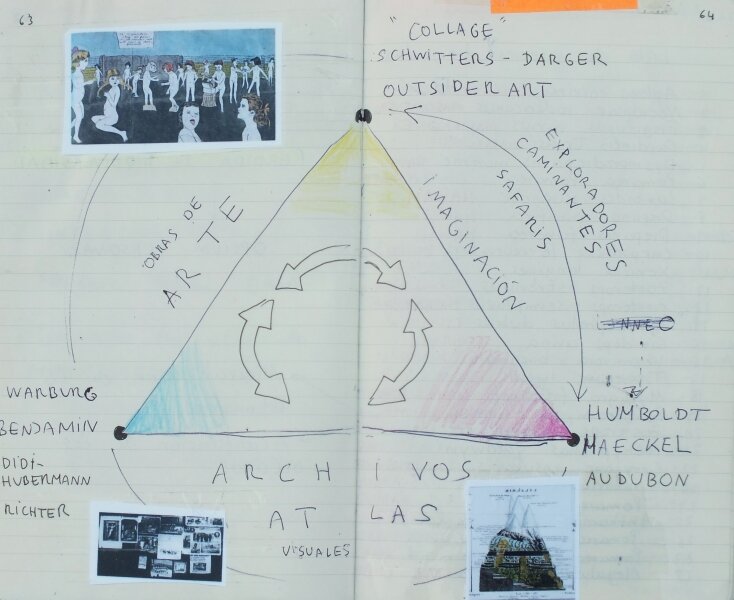 63
64
"COLLAGE"
SCHWITTERS - DARGER
OUTSIDER ART
EXPLORADORES
CAMINANTES
SAFARIS
IMAGINACIÓN
OBRAS DE
ARTE
WARBURG
BENJAMIN
DIDI-
HUBERMANN
RICHTER
HUMBOLDT
HAECKEL
AUDUBON
ARCHIVOS
ATLAS
VISUALES